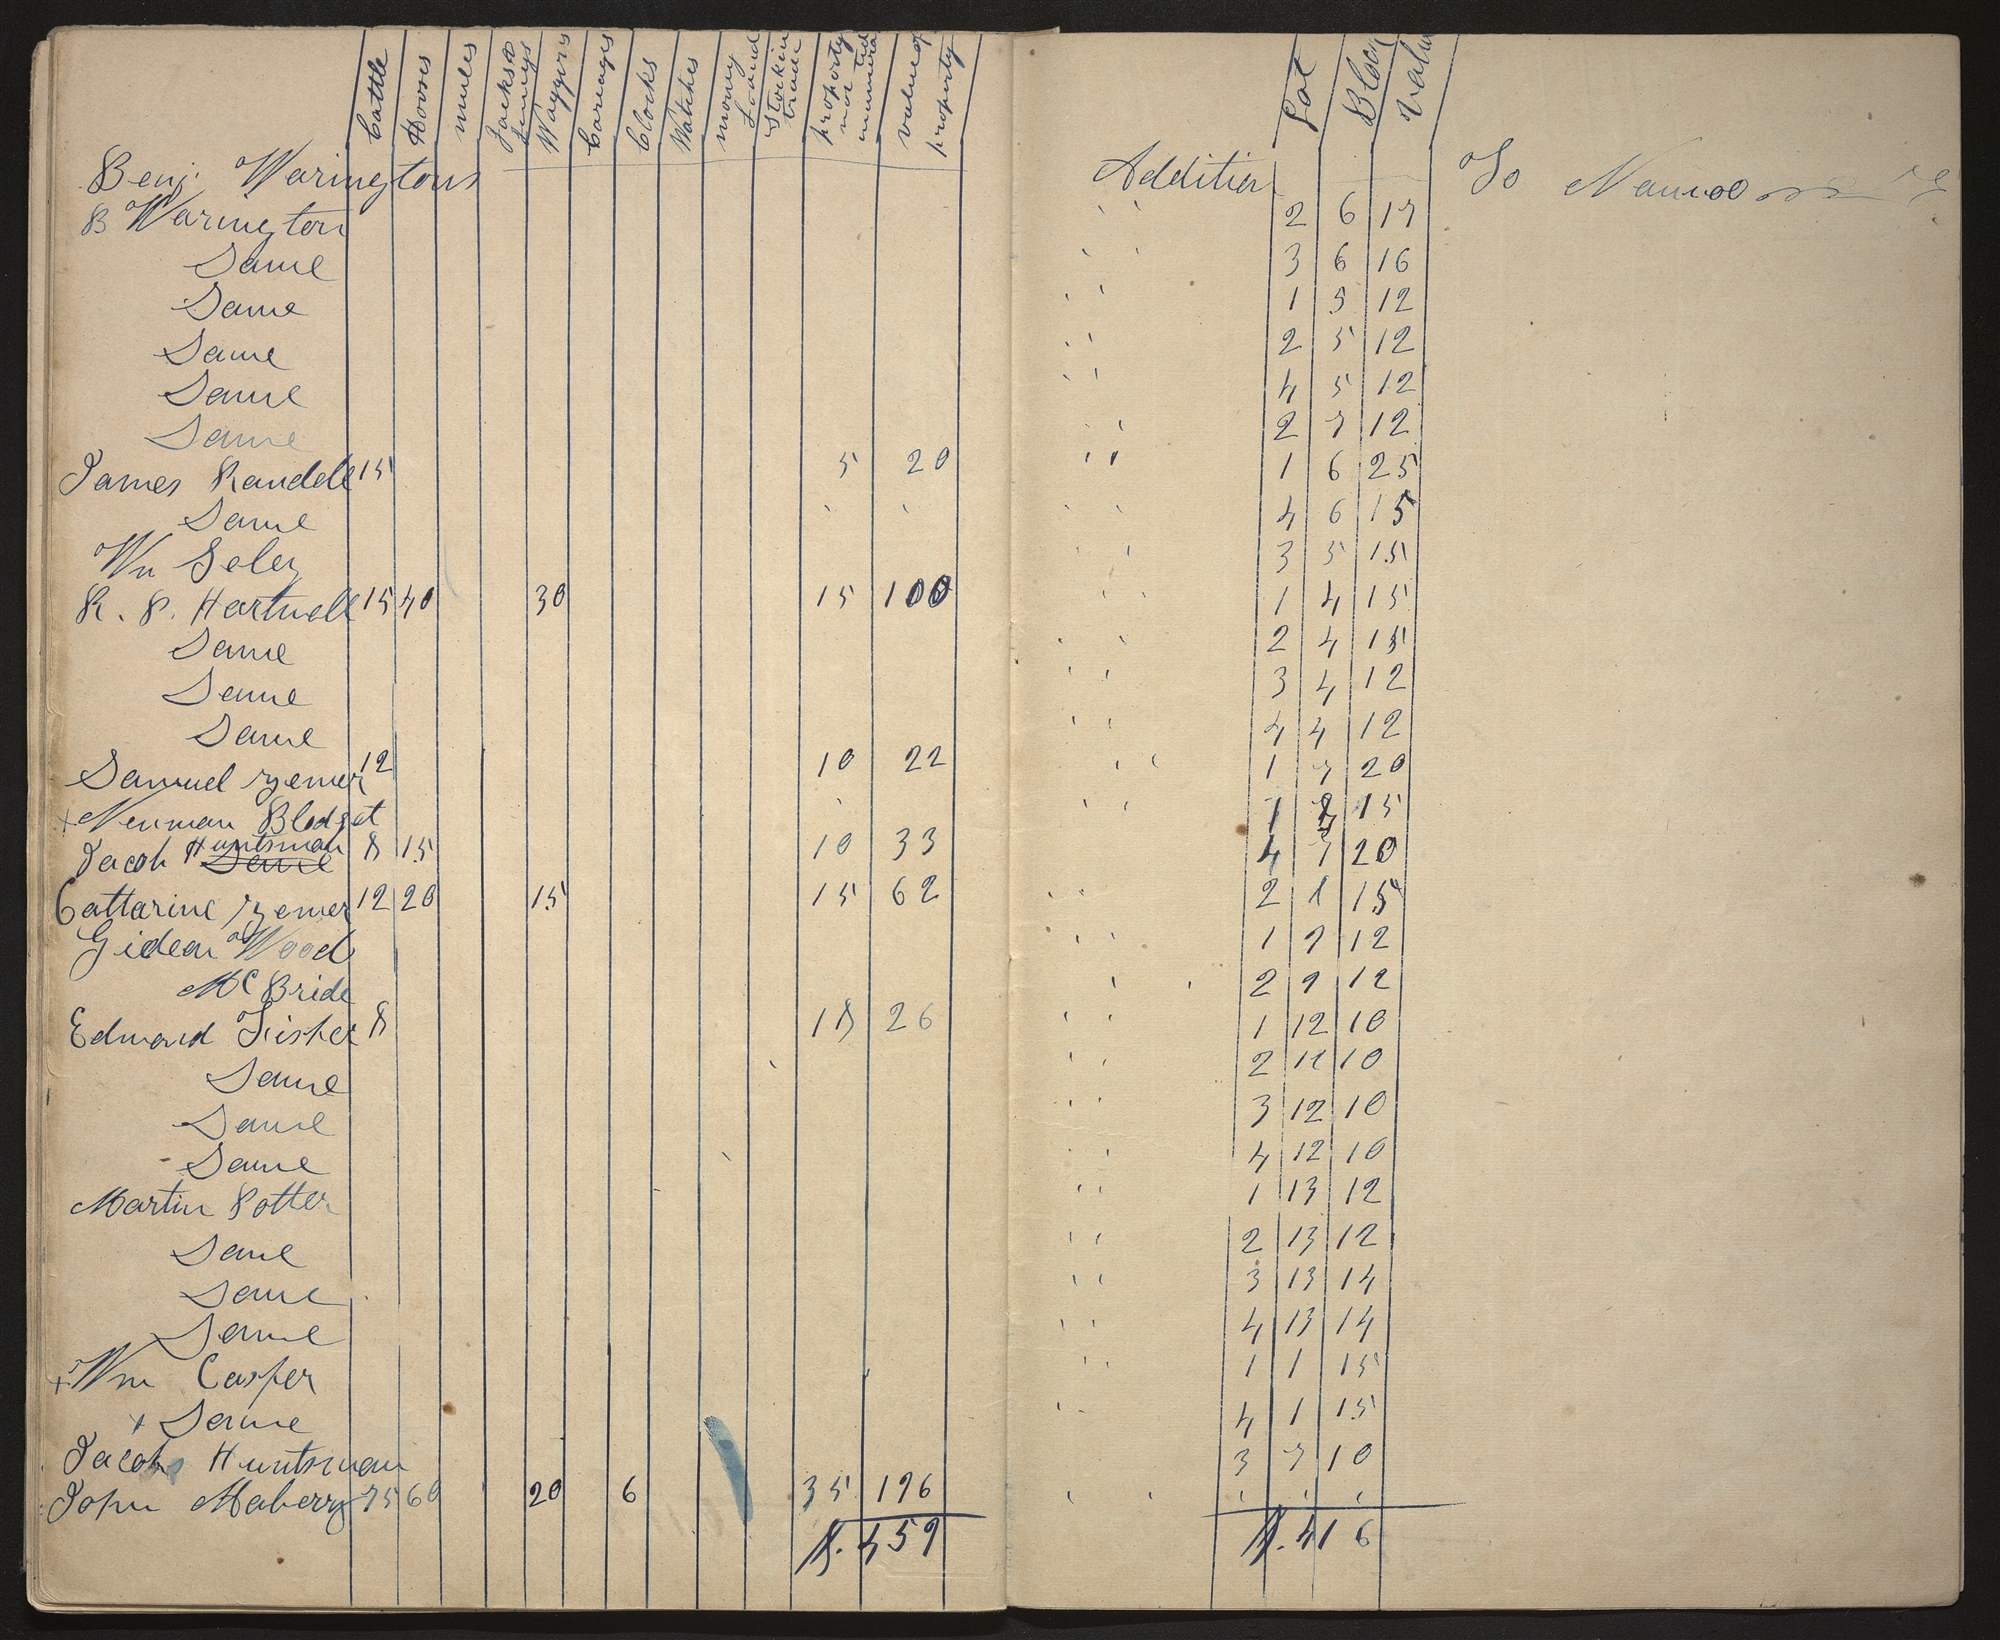 Cattle Horses mules Jacks & Jennys Waggons Careages Clocks Watches mony Loand Stock in trade property not enumerated value of property Lot Block Value
Benj. Waringtons Addition To Nauvoo
B Warington " " 2 6 17
Same " " 3 6 16
Same " " 1 5 12
Same " " 2 5 12
Same " " 4 5 12
Same " " 2 7 12
James Randell 15 5 20 " " 1 6 25
Same " " " " 4 6 15
Wm Seley " " 3 5 15
R. P. Hartwell 15 40 30 15 100 1 4 15
Same " " 2 4 15
Same " " 3 4 12
Same " " 4 4 12
Samuel Zemer 12 10 22 " " 1 7 20
+ Newman Blodget " " 1 15
Jacob Huntsman Same 8 15 10 33 4 7 20
Cattarine Zemer 12 20 15 15 62 " " 2 1 15
Gideon Wood " " 1 9 12
Mc Bride " " 2 9 12
Edmond Fisher 8 18 26 " " 1 12 10
Same " " 2 12 10
Same " " 3 12 10
Same " " 4 12 10
Martin Potter " " 1 13 12
Same " " 2 13 12
Same " " 3 13 14
Same " " 4 13 14
+ Wm Casper " " 1 1 15
+ Same " " 4 1 15
Jacob Huntsman 3 7 10
John Maberry 75 60 20 6 35 196 " " " " "
$. 459 $. 416